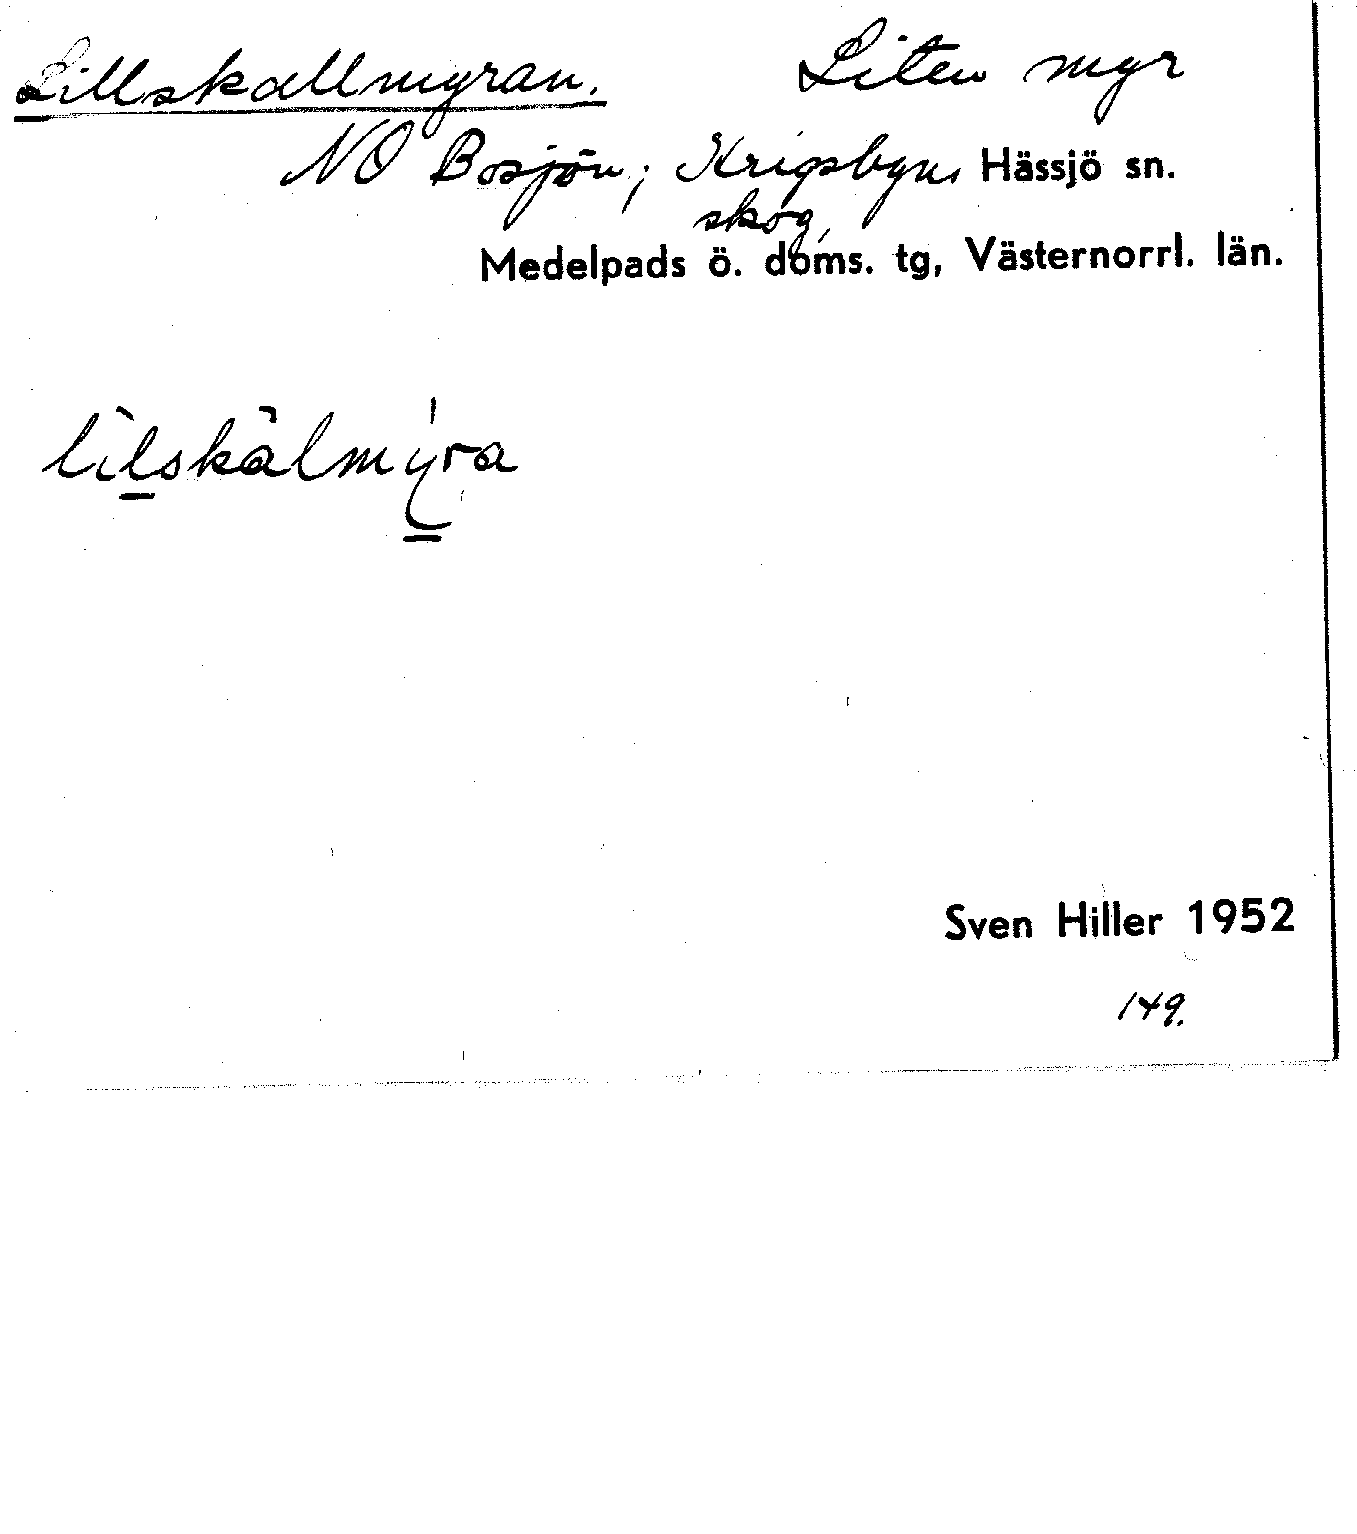 Lillskallmyran. Liten myr
NO Bosjön; Krigsbyns Hässjö sn.
skog,
Medelpads ö. doms. tg, Västernorrl. län.
lìlskàlmýra
Sven Hiller 1952
149.